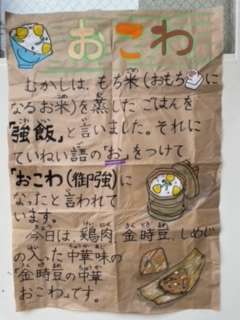 おこわ
むかしは、もち米(おもちに
なるお米)を蒸したごはんを
「強飯」と言いました。それに
ていねい語の「お」をつけて
「おこわ(御強)に
なったと言われて
います。
今日は、鶏肉、金時豆、しめじ
の入った中華味の
「金時豆の中華
おこわ」です。